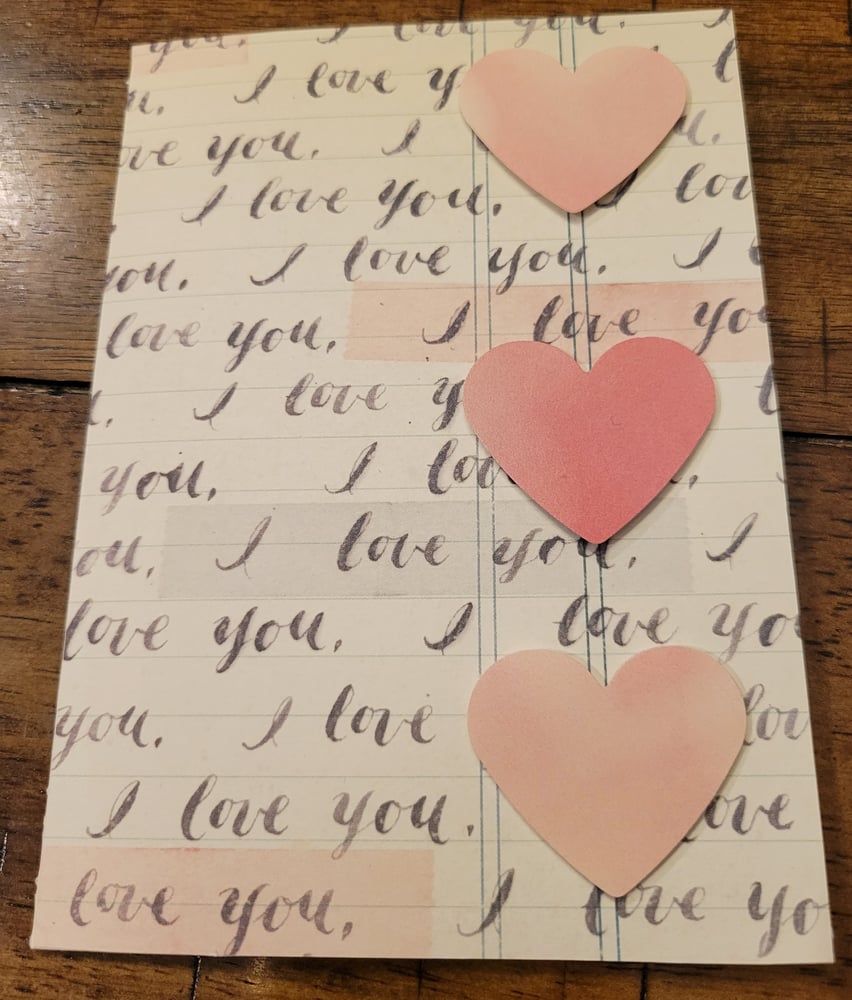 you. I love you. I
I love
I love you.
I love you. I lov
you. I love you. I
love you. I love you
I love
you. I lov
I love you. I
love you. I love yo
you. I love lov
I love you. ove
love you. I love yo